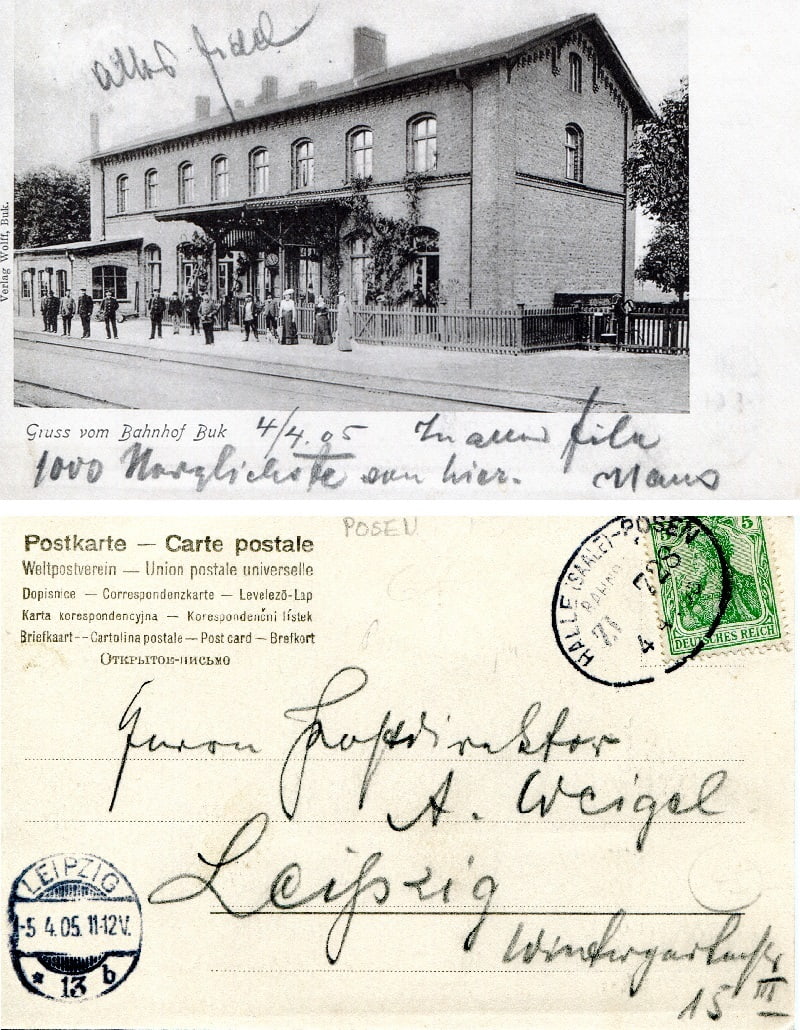 alles fidel
Verlag Wolff, Buk.
Gruss vom Bahnhof Buk 4/4.05 In aller Eile
1000 Herzlichste von hier. Hans
POSEN
Postkarte — Carte postale
Weltpostverein — Union postale universelle
Dopisnice — Correspondenzkarte — Levelezö-Lap
Karta korespondencyjna — Korespondenčni lístek
Briefkaart -- Cartolina postale — Post card — Brefkort
Открытое-письмо
HALLE (SAALE)-POSEN
BAHNP
ZUG 726
4 4
5
DEUTSCHES REICH
Herrn Postdirektor
A. Weigel
Leipzig
Wintergartenstr
15 III
LEIPZIG
-5 4.05. 11-12V.
* 13 b